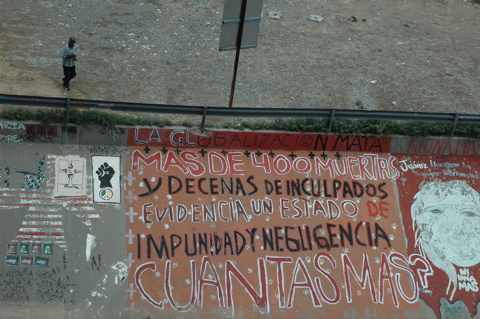 LA GLOBALIZACION MATA
MAS DE 400 MUERTAS
Y DECENAS DE INCULPADOS
EVIDENCIA UN ESTADO DE
IMPUNIDAD Y NEGLIGENCIA
CUANTAS MAS?
Juárez
NI UNA MAS
NI
UNA
MAS